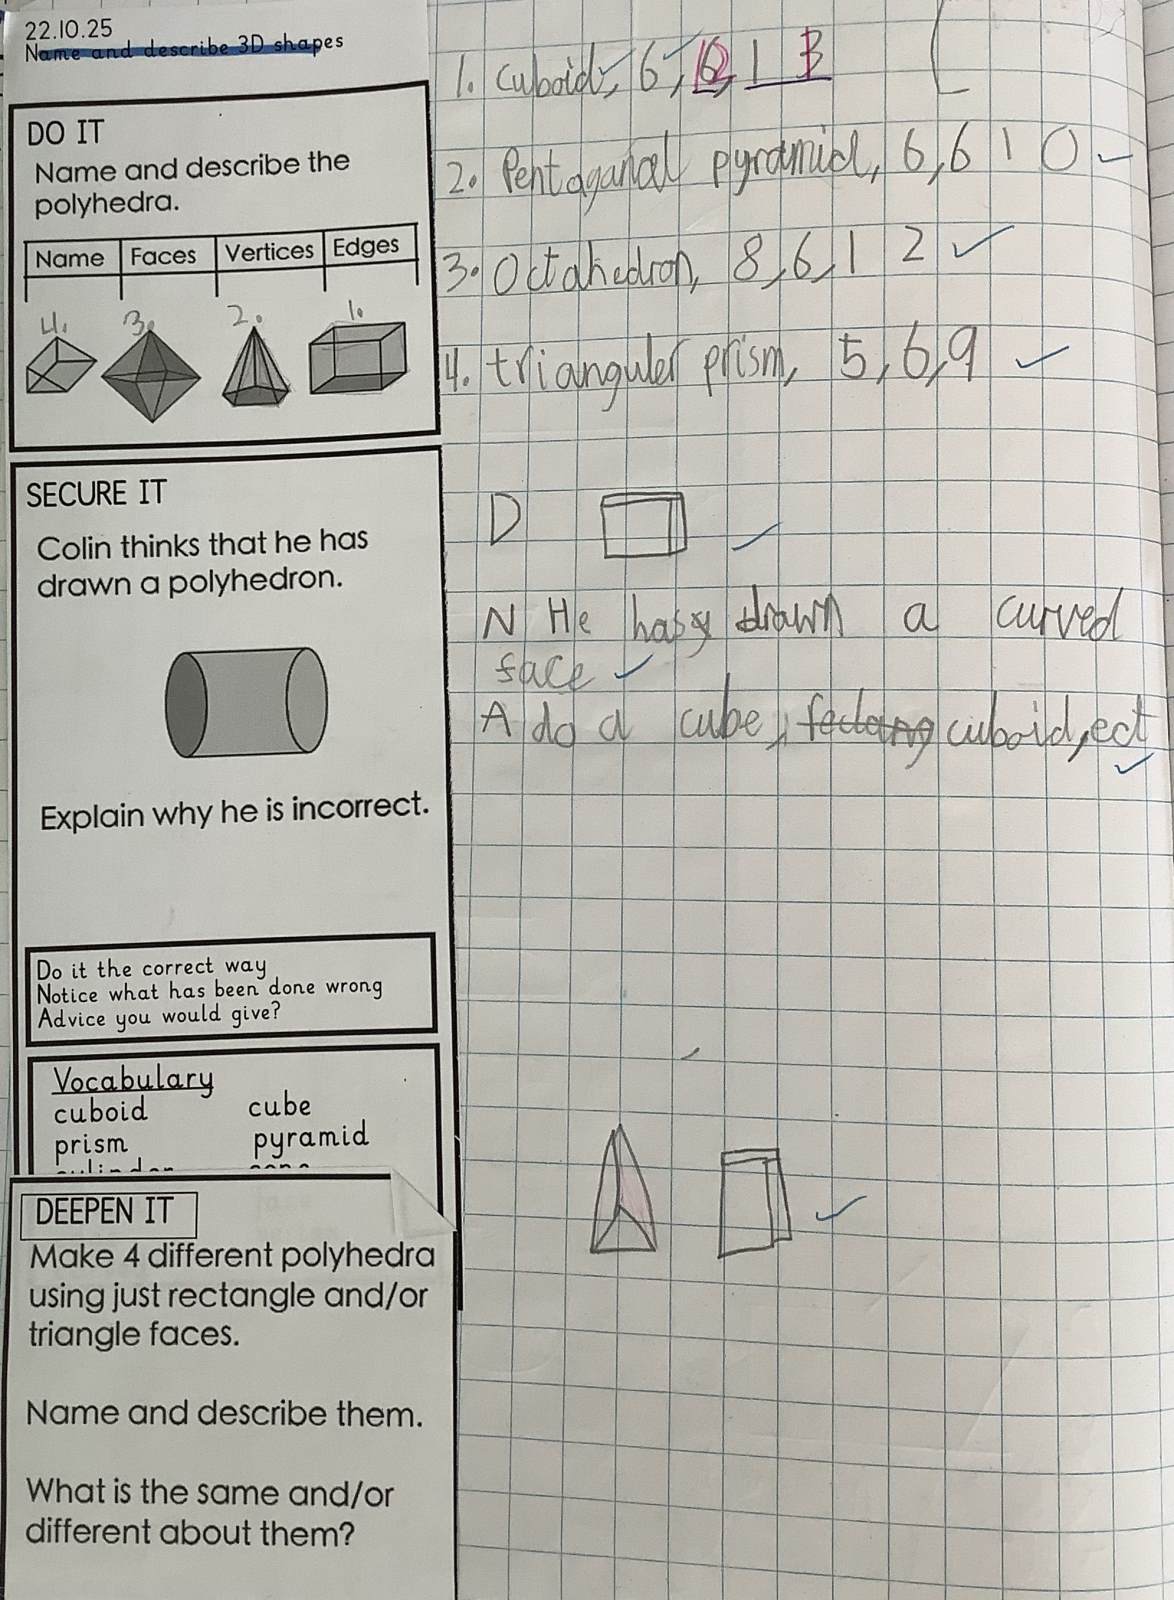 22.10.25
Name and describe 3D shapes
DO IT
Name and describe the
polyhedra.
Name Faces Vertices Edges
4. 3. 2. 1.
SECURE IT
Colin thinks that he has
drawn a polyhedron.
Explain why he is incorrect.
Do it the correct way
Notice what has been done wrong
Advice you would give?
Vocabulary
cuboid cube
prism pyramid
DEEPEN IT
Make 4 different polyhedra
using just rectangle and/or
triangle faces.
Name and describe them.
What is the same and/or
different about them?
1. cuboid, 6, 1 3
2. Pentaganal pyramid, 6, 6 1 0
3. Octahedron, 8, 6, 1 2
4. trianguler prism, 5, 6, 9
D
N He has drawn a curved
face
A do a cube, cuboid, ect